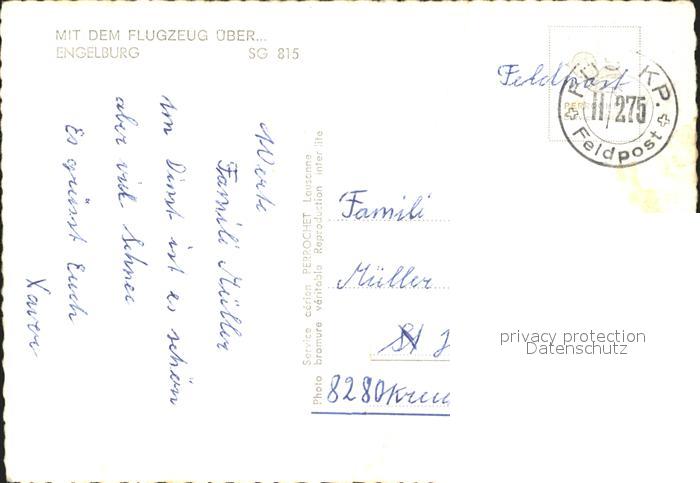 MIT DEM FLUGZEUG ÜBER...
ENGELBURG SG 815
Werte
Famili Müller
im Dinst ist es schön
aber viel Schnee
Es grüsst Euch
Xaver
Service aérien PERROCHET Lausanne
Photo bromure véritable Reproduction interdite
Feldpost
KP.
II/275
Feldpost
Famili
Müller
St J
8280 Kreu
privacy protection
Datenschutz